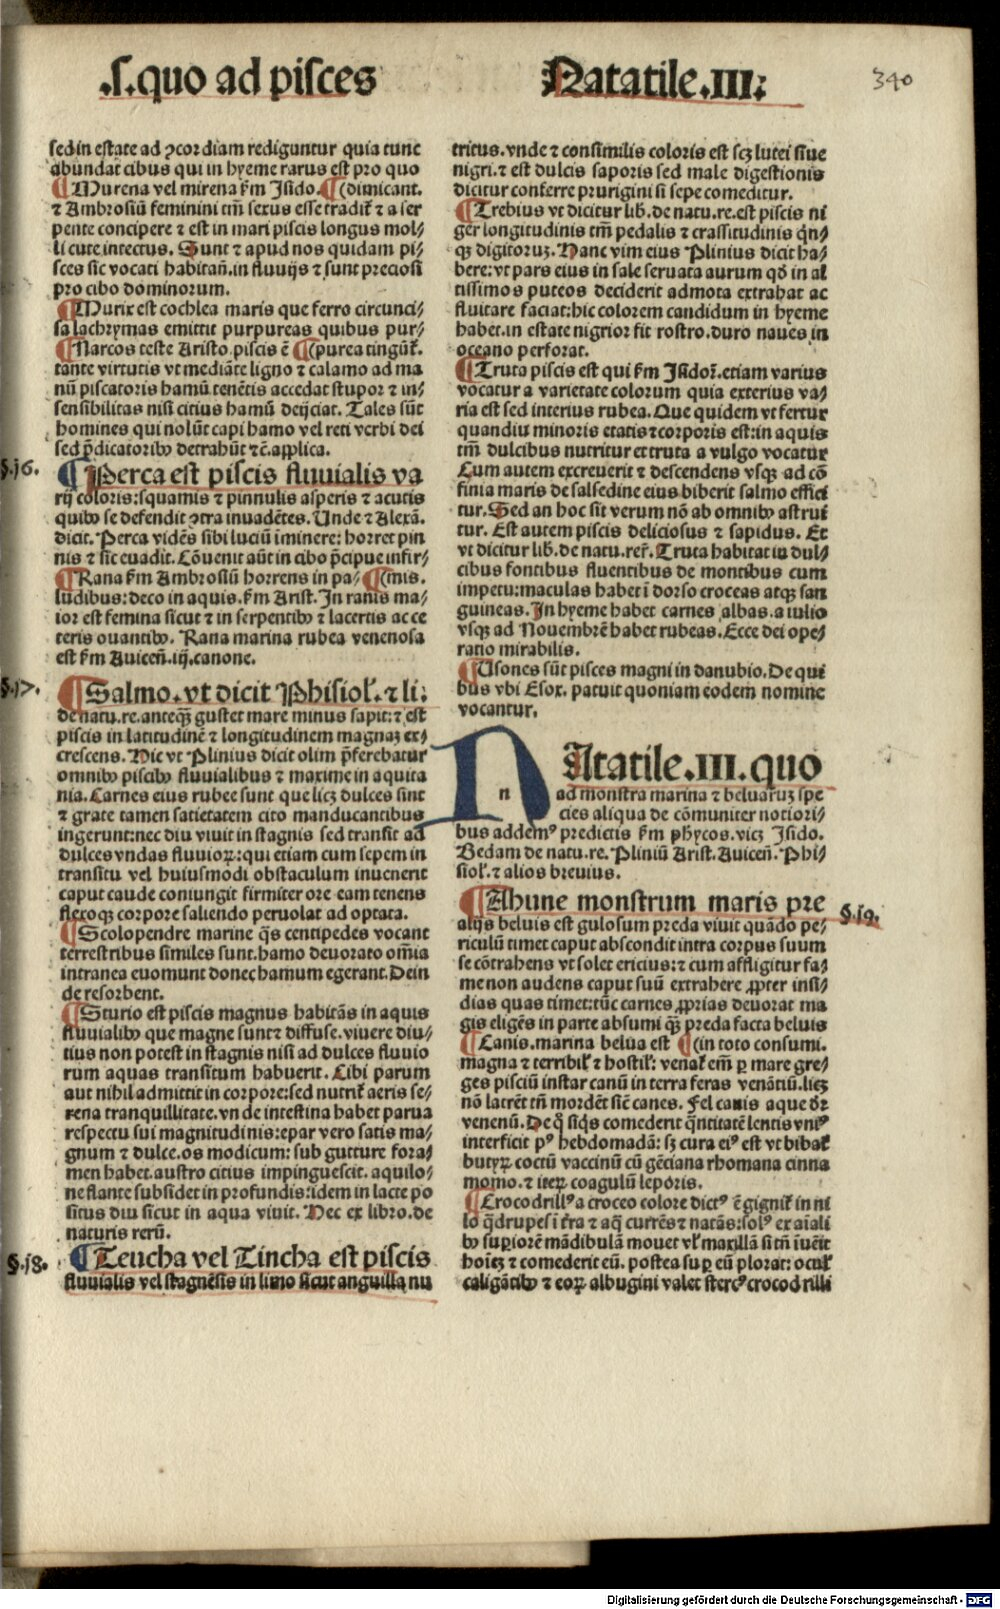 .ſ.quo ad piſces
Natatile.III.
340
ſed in eſtate ad ꝯcordiam rediguntur quia tunc
abundat cibus qui in hyeme rarus eſt pro quo
¶ Murena vel mirena ẜm Iſido. ¶ (dimicant.
⁊ Ambroſiū feminini tm̄ ſexus eſſe tradit̄ ⁊ a ſer
pente concipere ⁊ eſt in mari piſcis longus mol/
li cute intectus. Sunt ⁊ apud nos quidam pi/
ſces ſic vocati habitan̄.in fluuijs ⁊ ſunt precioſi
pro cibo dominorum.
¶ Murix eſt cochlea maris que ferro circunci/
ſa lachrymas emittit purpureas quibus pur/
¶ Narcos teſte Ariſto.piſcis ē ¶ (purea tingūt̄.
tante virtutis vt mediāte ligno ⁊ calamo ad ma
nū piſcatoris hamū tenētis accedat ſtupor ⁊ in/
ſenſibilitas niſi citius hamū deijciat. Tales ſūt
homines qui nolūt capi hamo vel reti verbi dei
ſed p̄dicatoribꝰ detrahūt ⁊cē.applica.
§.16.
¶ Perca eſt piſcis fluuialis va
rij coloris:ſquamis ⁊ pinnulis aſperis ⁊ acutis
quibꝰ ſe defendit ꝯtra inuadētes. Unde ⁊ Alexā.
dicit. Perca vidēs ſibi luciū īminere: horret pin
nis ⁊ ſic euadit. Cōuenit aūt in cibo p̄cipue infir/
¶ Rana ẜm Ambroſiū horrens in pa/ ¶ (mis.
ludibus:deco in aquis.ẜm Ariſt. In ranis ma/
ior eſt femina ſicut ⁊ in ſerpentibꝰ ⁊ lacertis ac ce
teris ouantibꝰ. Rana marina rubea venenoſa
eſt ẜm Auicen̄.iij.canone.
§.17.
¶ Salmo.vt dicit Phiſiol̄.⁊ li:
de natu.re.anteqꝫ guſtet mare minus ſapit:⁊ eſt
piſcis in latitudinē ⁊ longitudinem magnaꝫ ex/
creſcens. Hic vt Plinius dicit olim p̄ferebatur
omnibꝰ piſcibꝰ fluuialibus ⁊ maxime in aquita
nia. Carnes eius rubee ſunt que licꝫ dulces ſint
⁊ grate tamen ſatietatem cito manducantibus
ingerunt:nec diu viuit in ſtagnis ſed tranſit ad
dulces vndas fluuioꝝ:qui etiam cum ſepem in
tranſitu vel huiuſmodi obſtaculum inuenerit
caput caude coniungit firmiter ore eam tenens
flexoqꝫ corpore ſaliendo peruolat ad optata.
¶ Scolopendre marine q̄s centipedes vocant
terreſtribus ſimiles ſunt.hamo deuorato om̄ia
intranea euomunt donec hamum egerant. Dein
de reſorbent.
¶ Sturio eſt piſcis magnus habitās in aquis
fluuialibꝰ que magne ſunt ⁊ diffuſe.viuere diu/
tius non poteſt in ſtagnis niſi ad dulces fluuio
rum aquas tranſitum habuerit. Cibi parum
aut nihil admittit in corpore:ſed nutrit̄ aeris ſe/
rena tranquillitate.vn de inteſtina habet parua
reſpectu ſui magnitudinis:epar vero ſatis ma/
gnum ⁊ dulce.os modicum: ſub gutture fora/
men habet.auſtro citius impingueſcit.aquilo/
ne flante ſubſidet in profundis:idem in lacte po
ſitus diu ſicut in aqua viuit. Hec ex libro.de
naturis rerū.
§.18.
¶ Teucha vel Tincha eſt piſcis
fluuialis vel ſtagnēſis in limo ſicut anguilla nu
tritus.vnde ⁊ conſimilis coloris eſt ſcꝫ lutei ſiue
nigri.⁊ eſt dulcis ſaporis ſed male digeſtionis
dicitur conferre prurigini ſi ſepe comeditur.
¶ Trebius vt dicitur lib.de natu.re.eſt piſcis ni
ger longitudinis tm̄ pedalis ⁊ craſſitudinis q̄n/
qꝫ digitoruꝫ. Hanc vim eius Plinius dicit ha/
bere:vt pars eius in ſale ſeruata aurum qd̄ in al
tiſſimos puteos deciderit admota extrahat ac
fluitare faciat:hic colorem candidum in hyeme
habet.in eſtate nigrior fit roſtro.duro naues in
oceano perforat.
¶ Truta piſcis eſt qui ẜm Iſidor̄.etiam varius
vocatur a varietate colorum quia exterius va/
ria eſt ſed interius rubea. Que quidem vt fertur
quandiu minoris etatis ⁊ corporis eſt:in aquis
tm̄ dulcibus nutritur et truta a vulgo vocatur
Cum autem excreuerit ⁊ deſcendens vſqꝫ ad cō
finia maris de ſalſedine eius biberit ſalmo effici
tur. Sed an hoc ſit verum nō ab omnibꝰ aſtrui
tur. Eſt autem piſcis delicioſus ⁊ ſapidus. Et
vt dicitur lib.de natu.rer̄. Truta habitat in dul/
cibus fontibus fluentibus de montibus cum
impetu:maculas habet ī dorſo croceas atqꝫ ſan
guineas. In hyeme habet carnes albas.a iulio
vſqꝫ ad Nouembrē habet rubeas. Ecce dei ope/
ratio mirabilis.
¶ Uſones ſūt piſces magni in danubio. De qui
bus vbi Eſox. patuit quoniam eodem nomine
vocantur.
n
NAtatile.III.quo
ad monſtra marina ⁊ beluaruꝫ ſpe
cies aliqua de cōmuniter notiori/
bus addemꝰ predictis ẜm phycos.vicꝫ Iſido.
Bedam de natu.re. Pliniū Ariſt. Auicen̄. Phi/
ſiol̄.⁊ alios breuius.
§.19.
¶ Ahune monſtrum maris pre
alijs beluis eſt guloſum preda viuit quādo pe/
riculū timet caput abſcondit intra corpus ſuum
ſe cōtrahens vt ſolet ericius:⁊ cum affligitur fa/
me non audens caput ſuū extrahere ꝓpter inſi/
dias quas timet:tūc carnes ꝓprias deuorat ma
gis eligēs in parte abſumi qꝫ preda facta beluis
¶ Canis.marina belua eſt ¶ (in toto conſumi.
magna ⁊ terribil̄ ⁊ hoſtil̄: venat̄ em̄ ꝑ mare gre/
ges piſciū inſtar canū in terra feras venātiū.licꝫ
nō latrēt tn̄ mordēt ſic̄ canes. Fel canis aque dr̄
venenū. De qͦ ſiqͥs comederit qͣntitatē lentis vniꝰ
interficit pꝰ hebdomadā: ſꝫ cura eiꝰ eſt vt bibat̄
butyꝝ coctū vaccinū cū gēciana rhomana cinna
momo.⁊ iteꝝ coagulū leporis.
¶ Crocodrillꝰ a croceo colore dictꝰ ē gignit̄ in ni
lo q̄drupes ī t̄ra ⁊ aq̄ currēs ⁊ natās:ſolꝰ ex aīali
bꝰ ſuꝑiorē mādibulā mouet vl̄ maxillā ſi tn̄ īuēit
hoīeꝫ ⁊ comederit eū. poſtea ſuꝑ eū plorat: ocul̄
caligātibꝰ ⁊ eoꝝ albugini valet ſtercꝰ crocodrilli
Digitalisierung gefördert durch die Deutsche Forschungsgemeinschaft - DFG